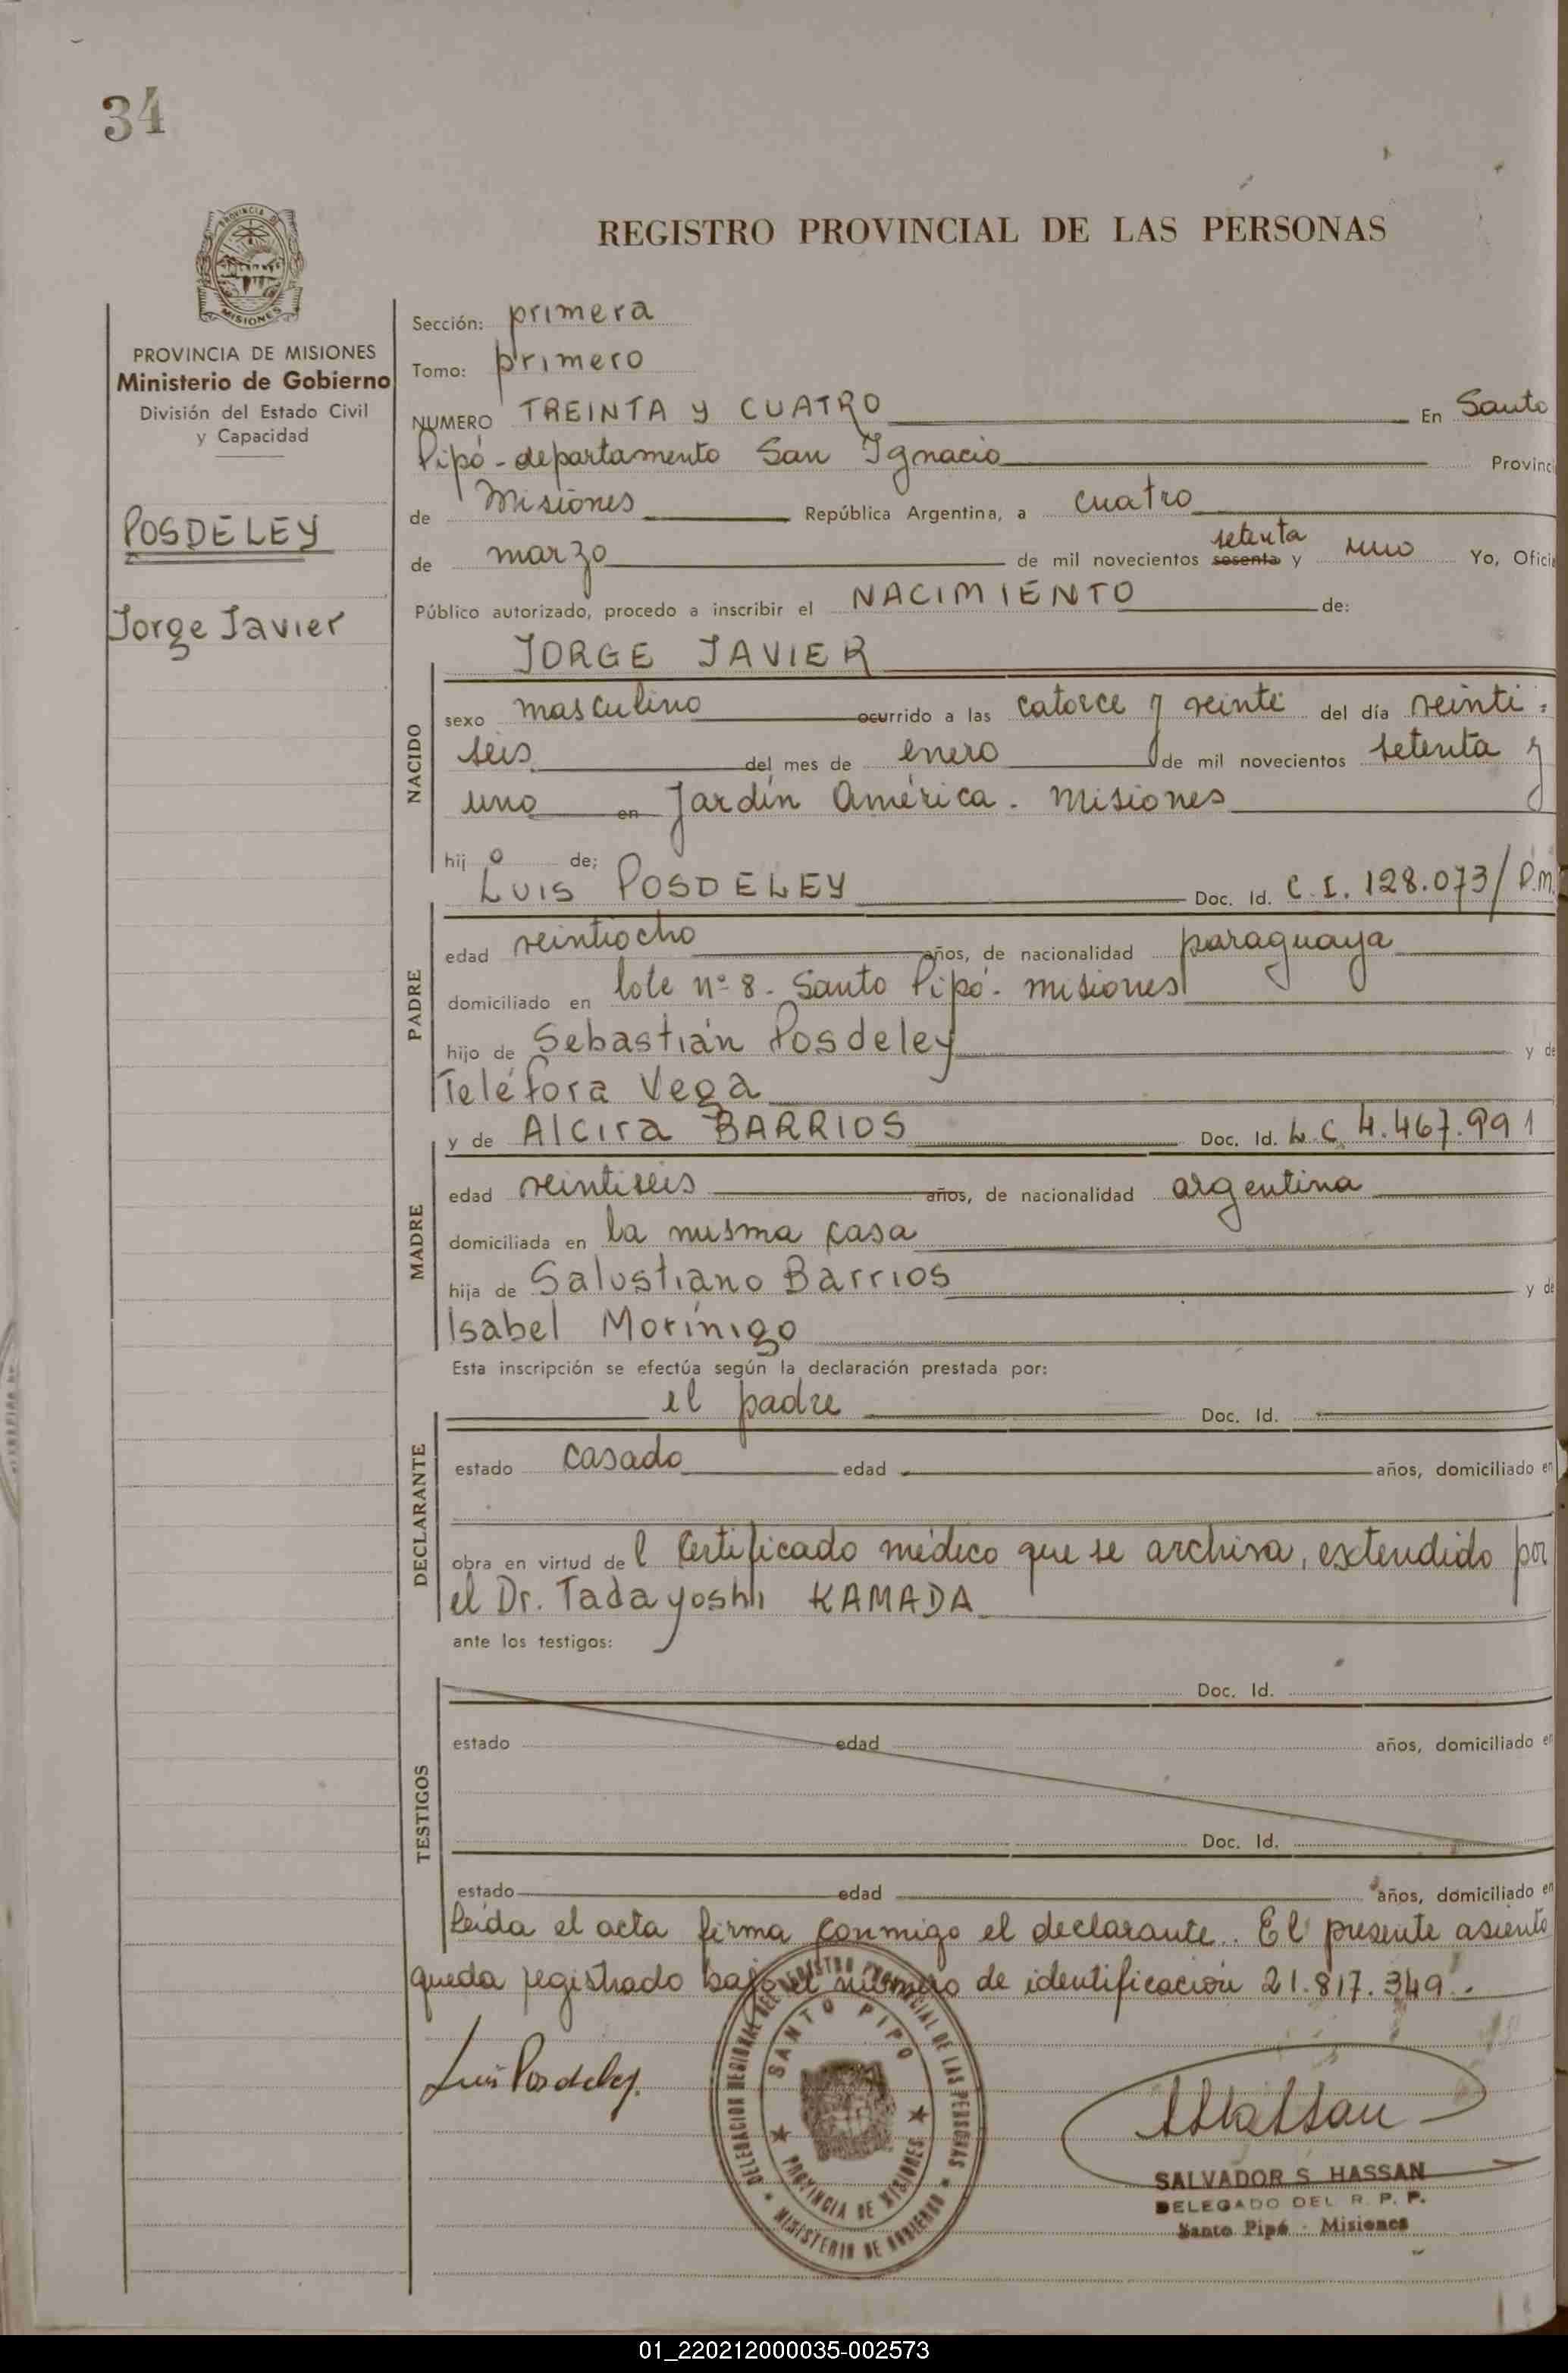 34
PROVINCIA DE
MISIONES
PROVINCIA DE MISIONES
Ministerio de Gobierno
División del Estado Civil
y Capacidad
POSDELEY
Jorge Javier
REGISTRO PROVINCIAL DE LAS PERSONAS
Sección: primera
Tomo: primero
NUMERO TREINTA y CUATRO En Santo
Pipó - departamento San Ignacio Provinci
de Misiones República Argentina, a cuatro
de marzo de mil novecientos sesenta setenta y uno Yo, Ofici
Público autorizado, procedo a inscribir el NACIMIENTO de:
JORGE JAVIER
NACIDO
sexo masculino ocurrido a las catorce y veinte del día veinti-
seis del mes de enero de mil novecientos setenta y
uno en Jardín América - Misiones
hij o de;
LUIS POSDELEY Doc. Id. C.I. 128.073/P.M.
PADRE
edad veintiocho años, de nacionalidad paraguaya
domiciliado en lote nº 8 - Santo Pipó - Misiones
hijo de Sebastián Posdeley y de
Teléfora Vega
y de Alcira BARRIOS Doc. Id. L.C. 4.467.991
MADRE
edad veintiseis años, de nacionalidad argentina
domiciliada en la misma casa
hija de Salustiano Barrios y de
Isabel Morínigo
Esta inscripción se efectúa según la declaración prestada por:
el padre Doc. Id.
DECLARANTE
estado casado edad años, domiciliado en
obra en virtud de l certificado médico que se archiva, extendido por
el Dr. Tadayoshi KAMADA
ante los testigos:
TESTIGOS
Doc. Id.
estado edad años, domiciliado en
Doc. Id.
estado edad años, domiciliado en
Leída el acta firma conmigo el declarante. El presente asiento
queda registrado bajo el número de identificación 21.817.349.-
Luis Posdeley.
DELEGACION REGIONAL DEL REGISTRO PROVINCIAL DE LAS PERSONAS
MINISTERIO DE GOBIERNO
SANTO PIPO
PROVINCIA DE MISIONES
SHassan
SALVADOR S. HASSAN
DELEGADO DEL R. P. P.
Santo Pipó - Misiones
01_220212000035-002573